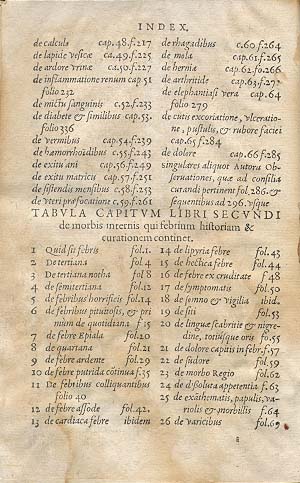 INDEX.
de calculo cap.48.f.217
de lapide vesicæ ca.49.f.225
de ardore vrinæ ca.50.f.227
de inflammatione renum cap 51
folio 232
de mictu sanguinis c.52.f.233
de diabete & similibus cap.53.
folio 336
de vermibus cap.54.f.239
de hæmorrhoidibus c.55.f.243
de exitu ani cap.56.f.249
de exitu matricis cap.57.f.251
de sistendis mensibus c.58.f.253
de vteri præfocatione c.59.f.261
de rhagadibus c.60.f.264
de mola cap.61.f.265
de herniæ cap.62.fo.266
de arthritide cap.63.f.27
de elephantiasi vera cap.64
folio 279
de cutis excoriatione, vlceratione,
pustulis, & rubore faciei
cap.65.f.284
de dolore cap.66.f.285
singulares aliquot Autoris Obseruationes,
quæ ad consilia
curandi pertinent fol.286.&
sequentibus ad 296.vsque
TABVLA CAPITVM LIBRI SECVNDI
de morbis internis qui febrium historiam &
curationem continet.
1 Quid sit febris fol.1
2 De tertiana fol.4
3 De tertiana notha fol 8
4 de semitertiana fol.12
5 de febribus horrificis fol.14
6 de febribus pituitosis, & primum
de quotidiana f 15
7 de febre Epiala fol.20
8 de quartana fol.21
9 de febre ardente fol.29
10 de febre putrida cōtinua f.35
11 De febribus colliquantibus
folio 40
12 de febre assode fol.42.
13 de cardiaca febre ibidem
14 de lipyria febre fol.43
15 de hectica febre fol.44
16 de febre ex cruditate f 48
17 de symptomatis fol.50
18 de somno & vigilia ibid.
19 de siti fol.53
20 de linguæ scabritie & nigredine,
totiusque oris fo.55
21 de dolore capitis in febr.f.57
22 de sudore fol.59
23 de morbo Regio fol.62
24 de dysoluta appetentia f.63
25 de exāthematis, papulis, variolis
& morbillis f.64
26 de varicibus fol.69